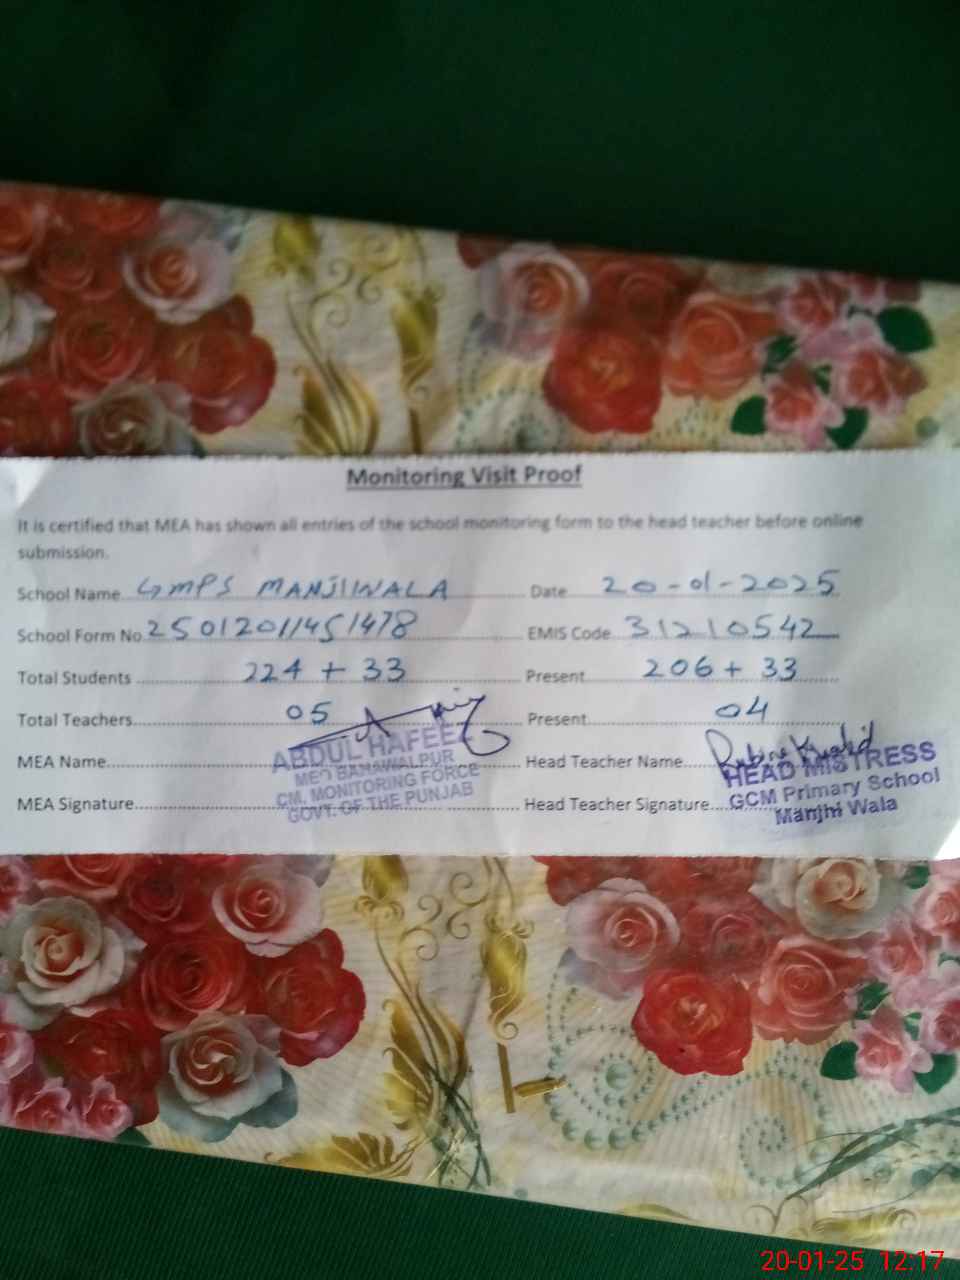 Monitoring Visit Proof
It is certified that MEA has shown all entries of the school monitoring form to the head teacher before online
submission.
School Name GMPS MANJIIWALA Date 20-01-2025
School Form No 25012011451478 EMIS Code 31210542
Total Students 224 + 33 Present 206 + 33
Total Teachers 05 Present 04
MEA Name ABDUL HAFEEZ Head Teacher Name Rubina Khalid
MEO BAHAWALPUR HEAD MISTRESS
CM, MONITORING FORCE GCM Primary School
MEA Signature GOVT. OF THE PUNJAB Head Teacher Signature Manjhi Wala
20-01-25 12:17